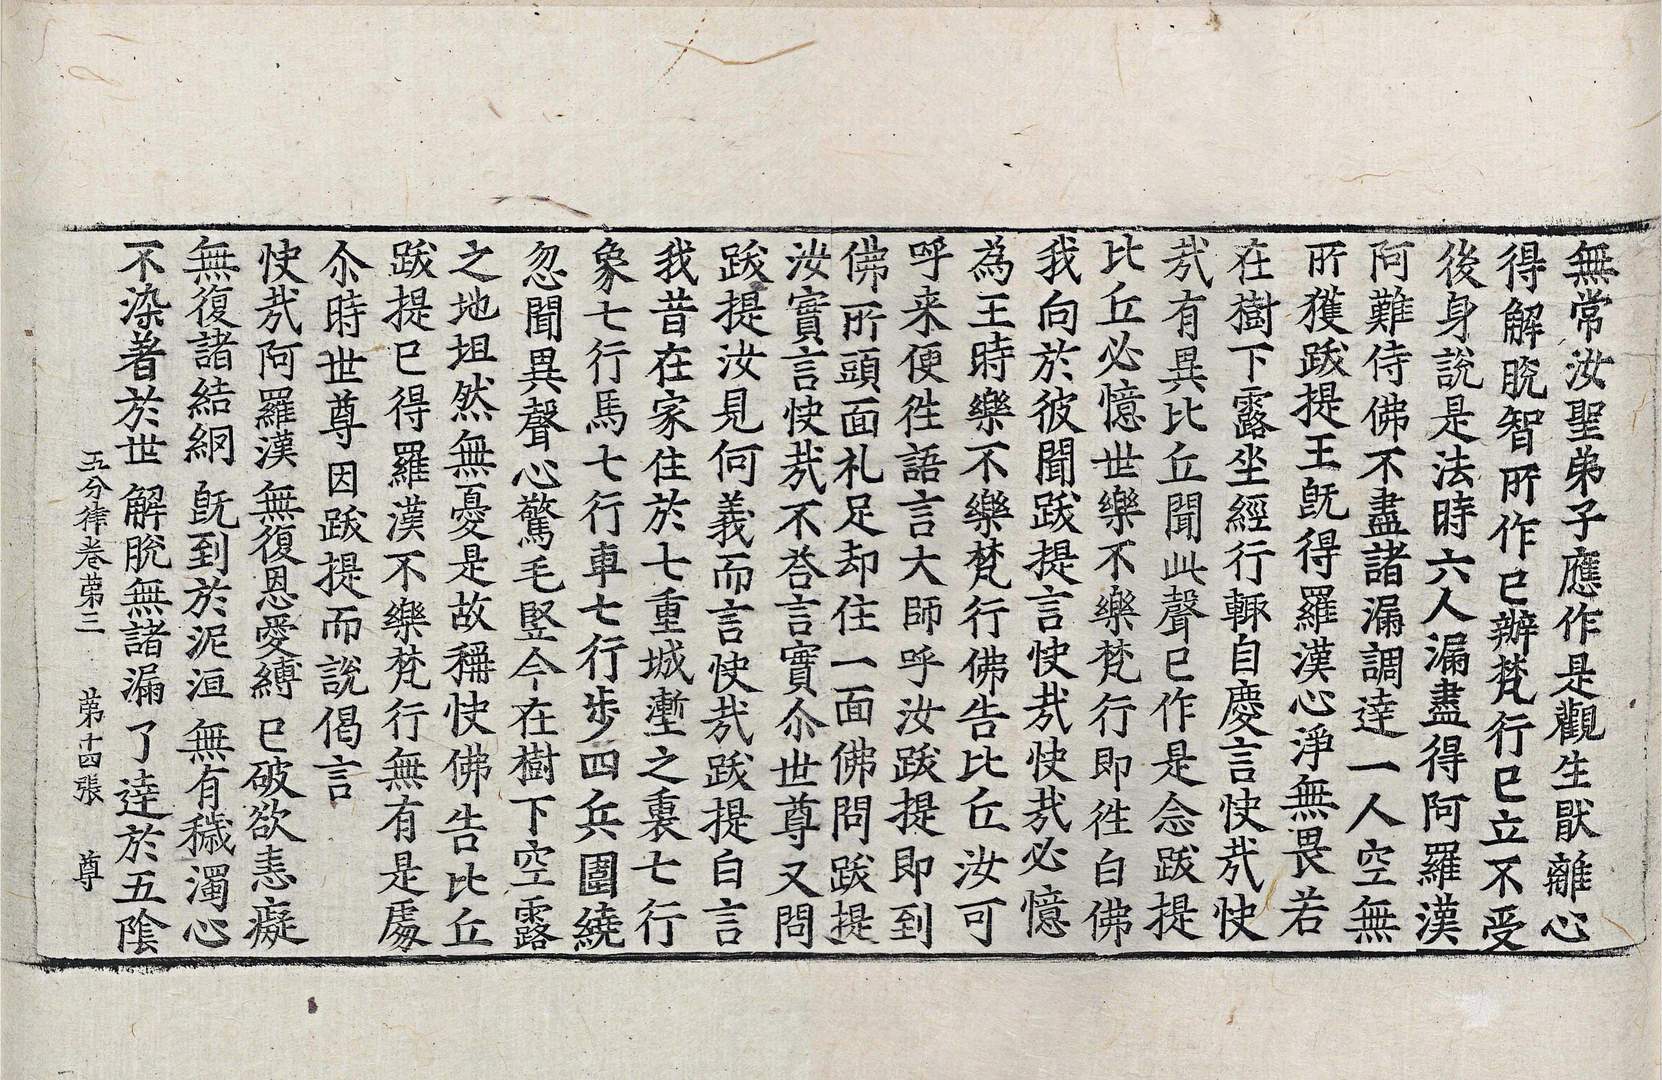 無常汝聖弟子應作是觀生猒離心
得解脫智所作已辦梵行已立不受
後身說是法時六人漏盡得阿羅漢
阿難侍佛不盡諸漏調達一人空無
所獲跋提王旣得羅漢心淨無畏若
在樹下露坐經行輙自慶言快㢤快
㢤有異比丘聞此聲已作是念跋提
比丘必憶世樂不樂梵行即往白佛
我向於彼聞跋提言快㢤快㢤必憶
為王時樂不樂梵行佛告比丘汝可
呼来便往語言大師呼汝跋提即到
佛所頭面礼足却住一面佛問跋提
汝實言快㢤不荅言實尒世尊又問
跋提汝見何義而言快㢤跋提白言
我昔在家住於七重城壍之裏七行
象七行馬七行車七行步四兵圍繞
忽聞異聲心驚毛竪今在樹下空露
之地坦然無憂是故稱快佛告比丘
跋提已得羅漢不樂梵行無有是處
尒時世尊因跋提而說偈言
快㢤阿羅漢 無復恩愛縛 已破欲恚癡
無復諸結網 旣到於泥洹 無有穢濁心
不染著於世 解脫無諸漏 了達於五陰
五分律卷苐三 苐十四張 尊